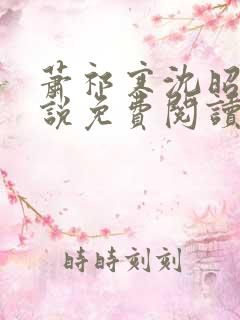 蕭祁寒沈昭
說免費閱讀
時時刻刻